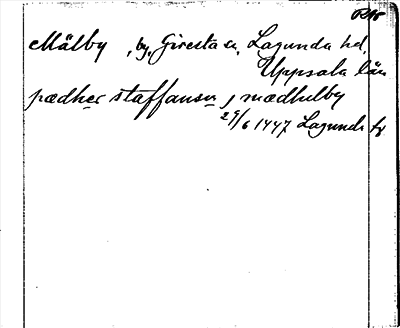 Mälby, by, Giresta sn, Lagunda hd,
Uppsala län
pædher staffansn j mædhelby
29/6 1447 Lagunda